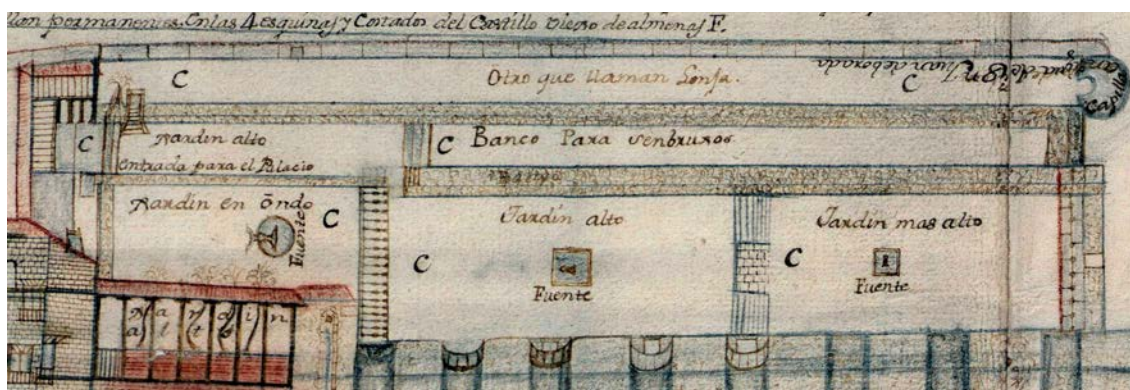 llan permanenes. En las 4 esquinas y Costados del Castillo Viexo de almenas F.
C
Otro que llaman Lonja.
C
Juan de borada
Capilla
C
Jardin alto
entrada para el Palacio
C
Banco Para senbruxos.
Jardin en ōndo
C
Fuente
Jardin alto
C
Fuente
Jardin mas alto
C
Fuente